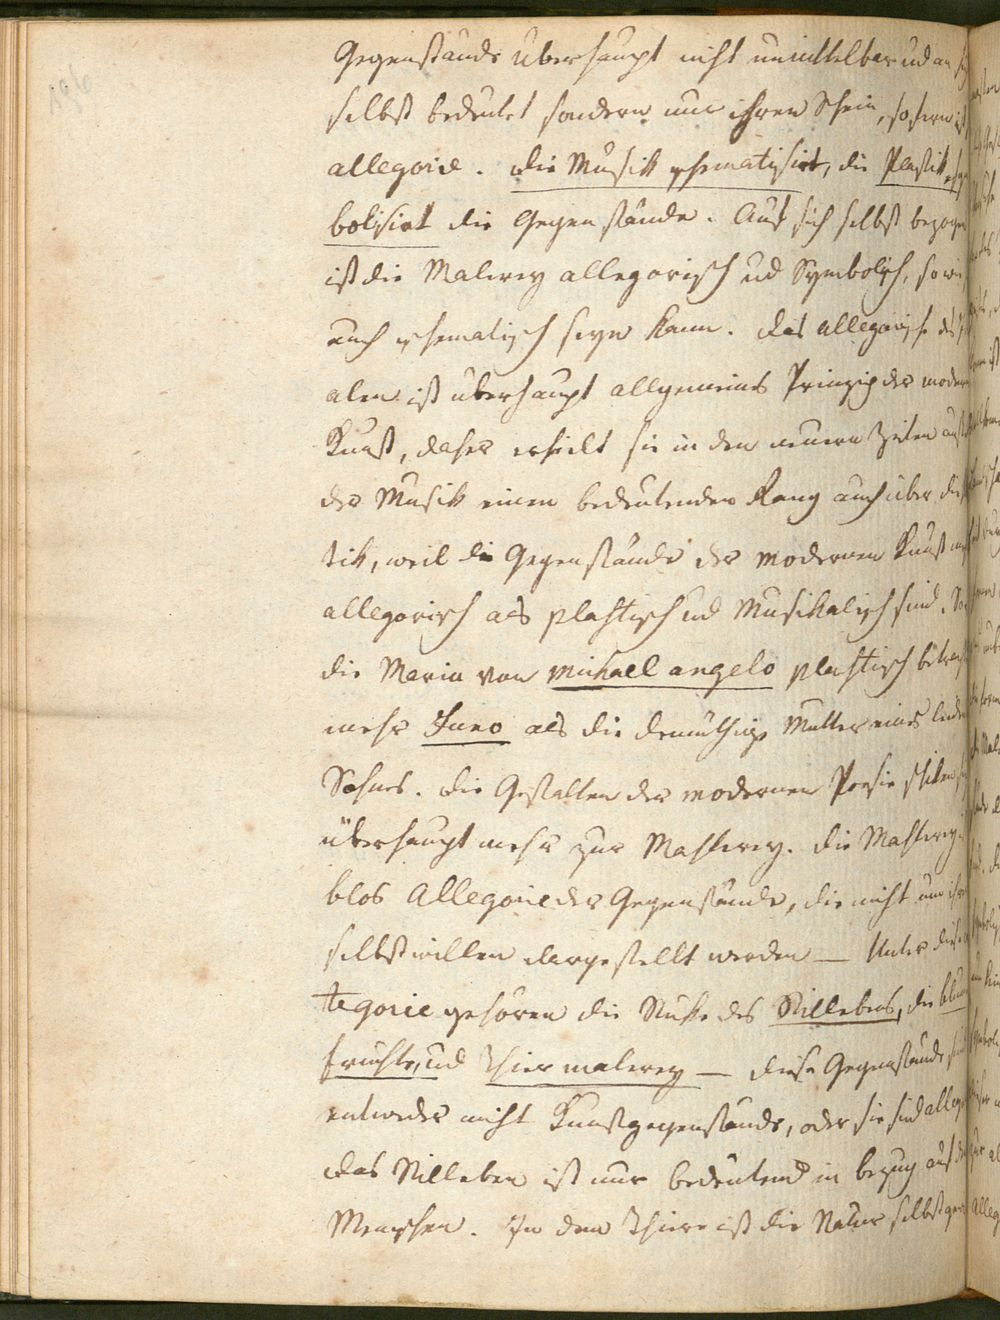 Gegenstände überhaupt nicht unmittelbar ud an
selbst bedeutet sondern nur ihren Schein, sofern ist
allegorie. Die Musik schematisirt, die Plastik
bolisirt die Gegenstände. Auf sich selbst bezogen
ist die Malerey allegorisch ud Symbolisch, so wie
auch schematisch seyn kann. Das allegorische des
alen ist überhaupt allgemeines Prinzip der modern
Kunst, daher erhielt sie in den neuern Zeiten
der Musik einen bedeutenden Rang auch über die
tik, weil die Gegenstände der modernen Kunst
allegorisch als plastisch ud Musikalisch sind. So
die Maria von Michael angelo plastisch
mehr Juno als die demüthige Mutter eines
Sohnes. Die Gestalten der modernen Poesie
überhaupt mehr zur Mahlerey. Die Mahlerey
blos Allegorie der Gegenstände, die nicht um ihr
selbst willen dargestellt werden — Unter diese
tegorie gehören die Stuffe des Stillebens, die
fruchte, ud Thiermalerey — diese Gegenstände
entweder nicht Kunstgegenstände, oder sie sind alleg
das Stilleben ist nur bedeutend in bezug auf
Menschen. In dem Thiere ist die Natur selbst